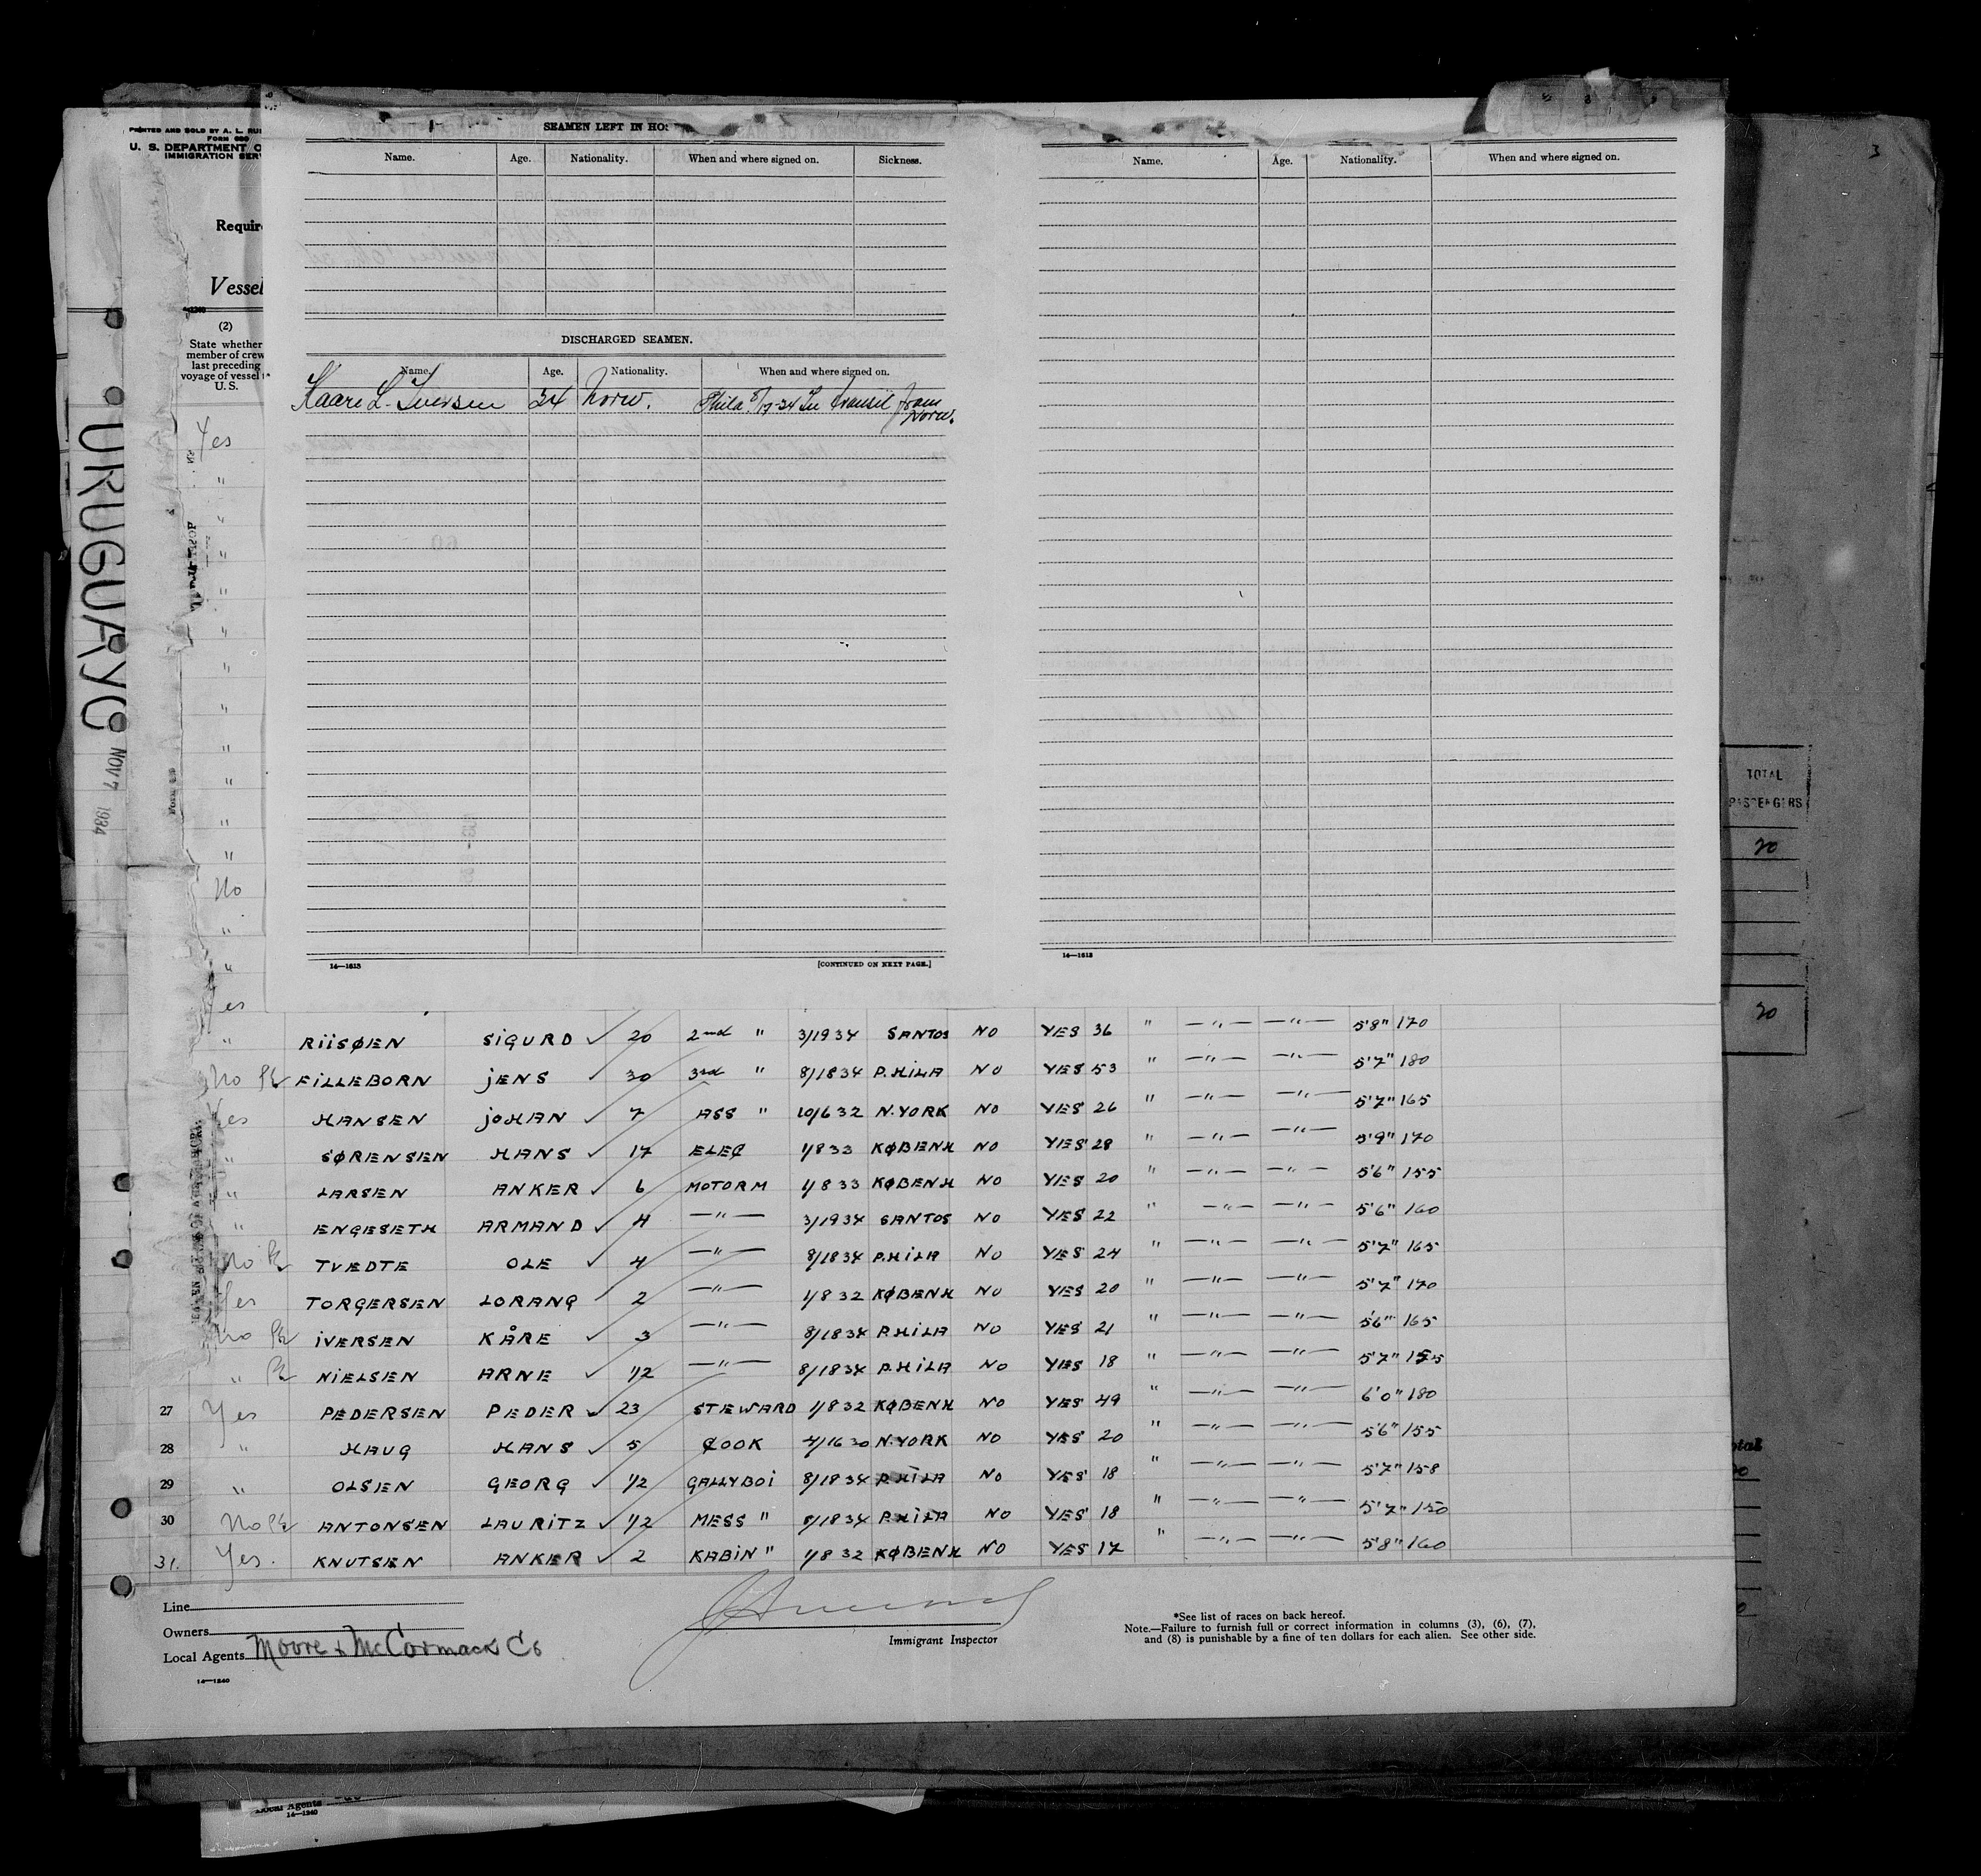 PRINTED AND SOLD BY A. L.
FORM 680
U. S. DEPARTMENT
IMMIGRATION
Vessel
(2)
State whether
member of crew
last preceding
voyage of vessel
U. S.
URUGUAYO NOV 7 1934
SEAMEN LEFT IN
Name. Age. Nationality. When and where signed on. Sickness.
Name. Age. Nationality. When and where signed on.
DISCHARGED SEAMEN.
Name. Age. Nationality. When and where signed on.
Kaare L. Iversen 34 Norw. Phila In transit from
Norw.
14—1613 [CONTINUED ON NEXT PAGE.]
14—1613
TOTAL
PASSENGERS
20
20
Yes
"
"
"
"
"
"
"
"
"
"
"
No
"
"
Yes
" RIISØEN SIGURD ✓ 20 2nd " 3/19 34 SANTOS NO YES 36 " —"— —"— 5'8" 170
No FILLEBORN JENS ✓ 30 3rd " 8/18 34 PHILA NO YES 53 " —"— —"— 5'7" 180
Yes HANSEN JOHAN ✓ 7 ASS " 10/6 32 N.YORK NO YES 26 " —"— —"— 5'7" 165
" SØRENSEN HANS ✓ 17 ELEC 1/8 33 KØBENH NO YES 28 " —"— —"— 5'9" 170
" LARSEN ANKER ✓ 6 MOTORM 1/8 33 KØBENH NO YES 20 " —"— —"— 5'6" 155
" ENGESETH ARMAND ✓ 4 —"— 3/19 34 SANTOS NO YES 22 " —"— —"— 5'6" 160
No TVEDTE OLE ✓ 4 —"— 8/18 34 PHILA NO YES 24 " —"— —"— 5'7" 165
Yes TORGERSEN LORANG ✓ 2 —"— 1/8 32 KØBENH NO YES 20 " —"— —"— 5'7" 170
No IVERSEN KÅRE ✓ 3 —"— 8/18 34 PHILA NO YES 21 " —"— —"— 5'6" 165
" NIELSEN ARNE ✓ 1/2 —"— 8/18 34 PHILA NO YES 18 " —"— —"— 5'7" 155
27 Yes PEDERSEN PEDER ✓ 23 STEWARD 1/8 32 KØBENH NO YES 49 " —"— —"— 6'0" 180
28 " HAUG HANS ✓ 5 COOK 4/16 30 N.YORK NO YES 20 " —"— —"— 5'6" 155
29 " OLSEN GEORG ✓ 1/2 GALLYBOI 8/18 34 PHILA NO YES 18 " —"— —"— 5'7" 158
30 No ANTONSEN LAURITZ ✓ 1/2 MESS " 8/18 34 PHILA NO YES 18 " —"— —"— 5'7" 150
31. Yes. KNUTSEN ANKER ✓ 2 KABIN " 1/8 32 KØBENH NO YES 17 " —"— —"— 5'8" 160
Line
Owners
Local Agents Moore & McCormack Co
14—1240
Immigrant Inspector
*See list of races on back hereof.
Note.—Failure to furnish full or correct information in columns (3), (6), (7),
and (8) is punishable by a fine of ten dollars for each alien. See other side.
Local Agents
14—1240